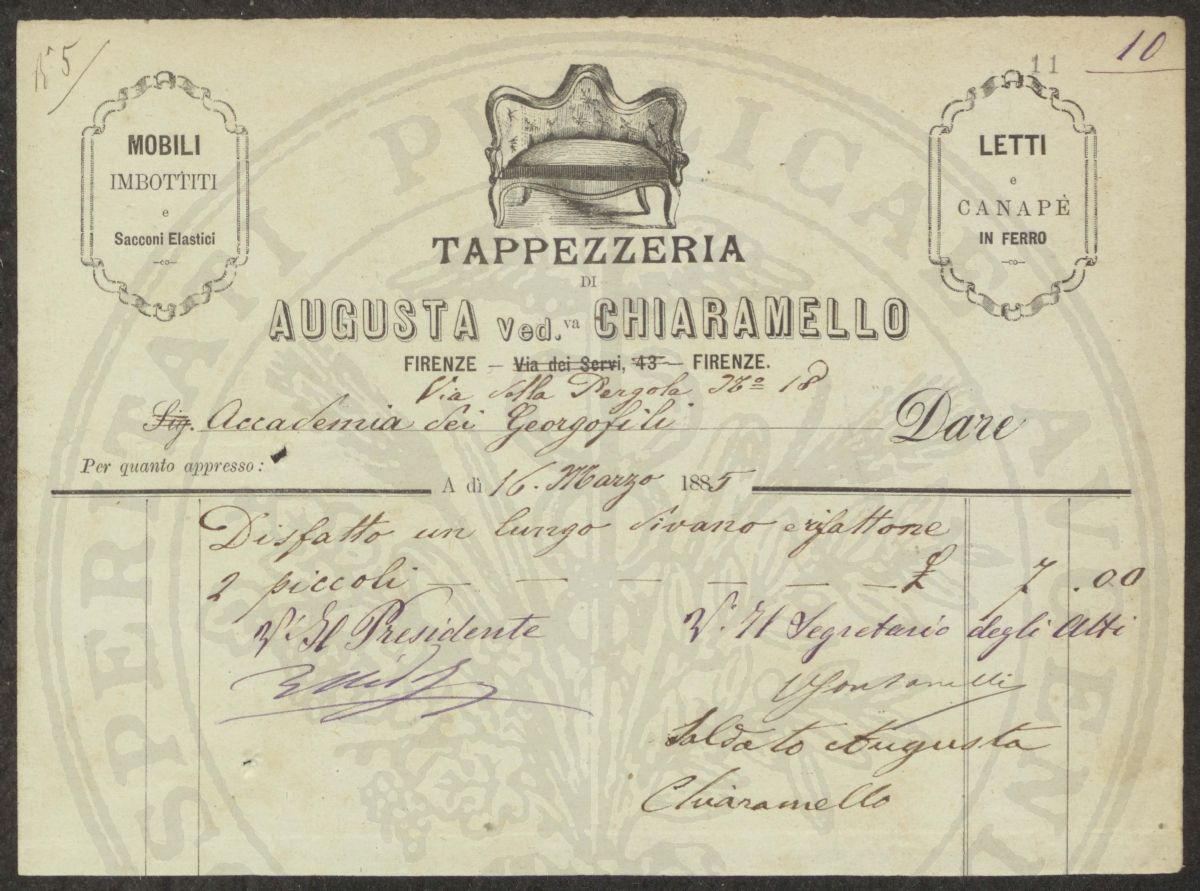 N° 5
11
10
MOBILI
IMBOTTITI
e
Sacconi Elastici
LETTI
e
CANAPÈ
IN FERRO
TAPPEZZERIA
DI
AUGUSTA Ved.va CHIARAMELLO
FIRENZE — Via dei Servi, 43 — FIRENZE.
Via della Pergola No 18
Sig. Accademia dei Georgofili Dare
Per quanto appresso:
A dì 16. Marzo 1885
Disfatto un lungo divano e rifattone
2 piccoli — — — — — — £ 7.00
V° Il Presidente
V° Il Segretario degli Atti
Saldato Augusta
Chiaramello
SPERITATI PUBLICAE AUGENDAE